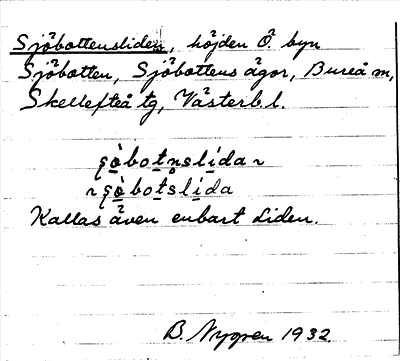 Sjöbottensliden, höjden Ö. byn
Sjöbotten, Sjöbottens ägor, Bureå m,
Skellefteå tg, Västerb. l.
ʂö̀botnslída ~
~ ʂö̀botslída
Kallas även enbart Liden.
B. Nygren 1932.